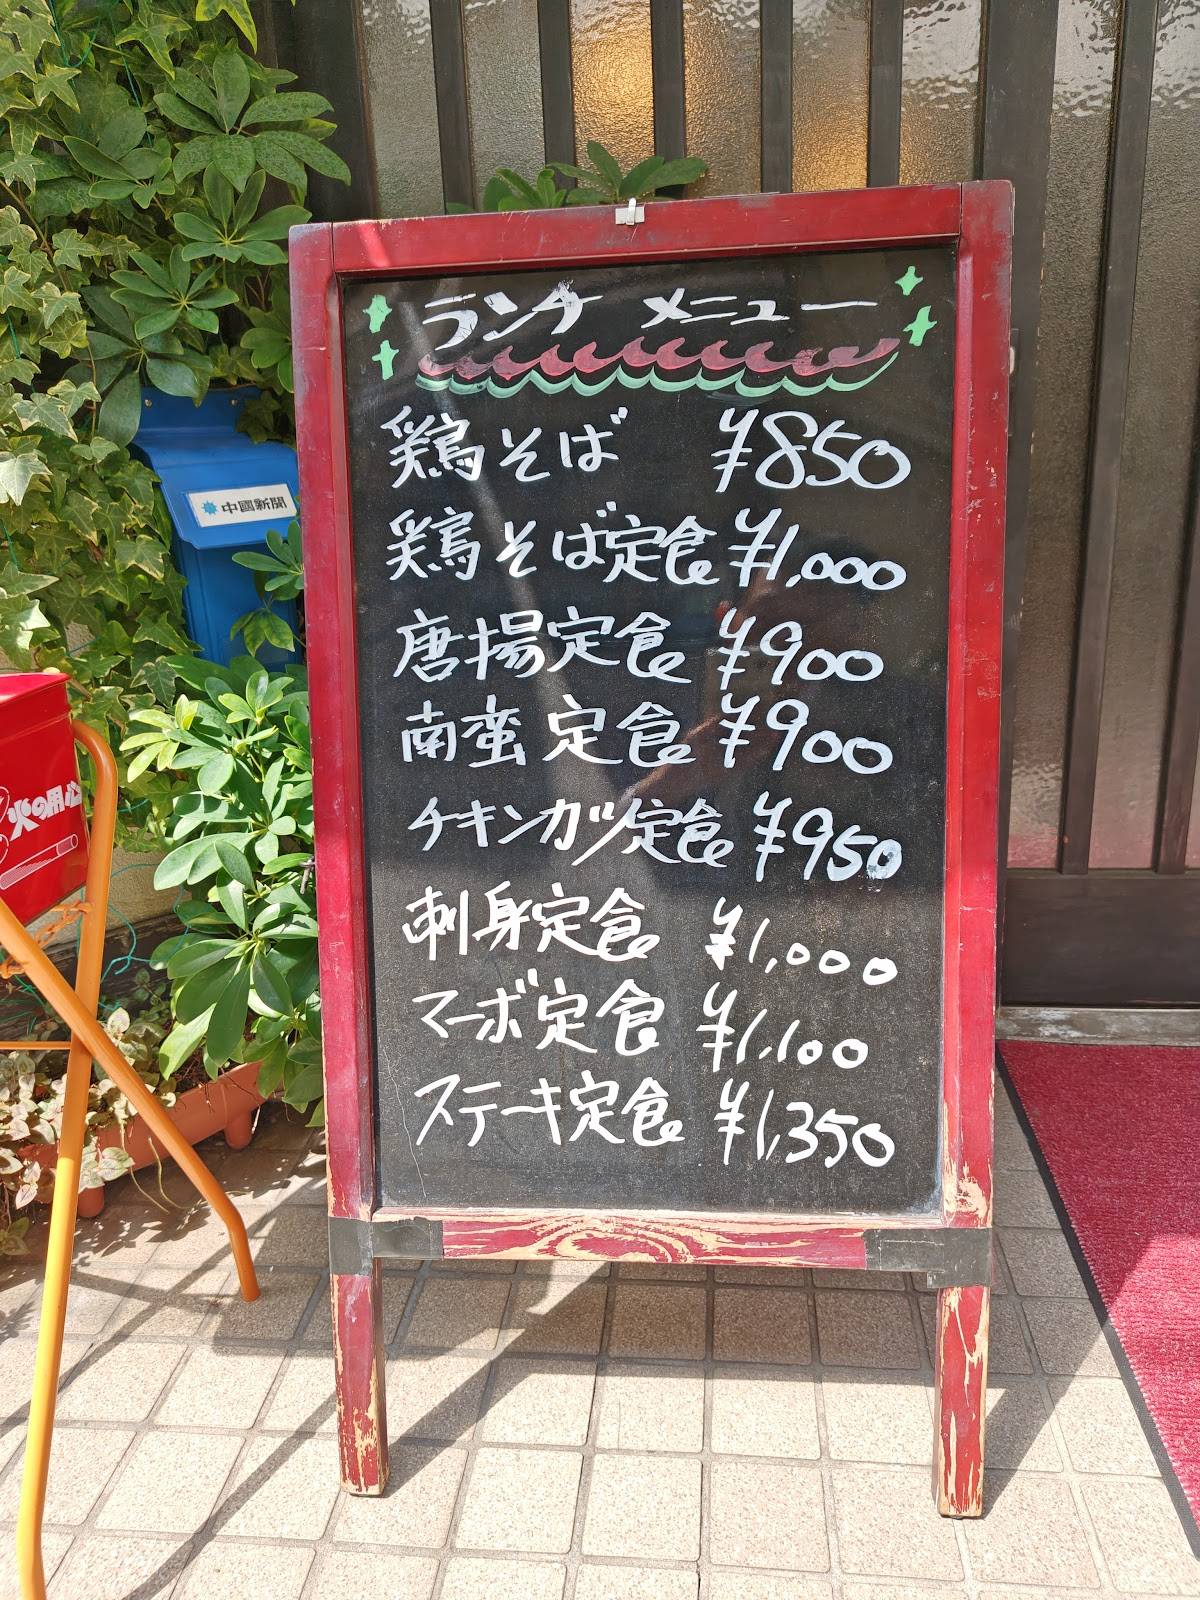 ランチ メニュー
鶏そば ¥850
鶏そば定食 ¥1,000
唐揚定食 ¥900
南蛮定食 ¥900
チキンカツ定食 ¥950
刺身定食 ¥1,000
マーボ定食 ¥1,100
ステーキ定食 ¥1,350
中國新聞
火の用心